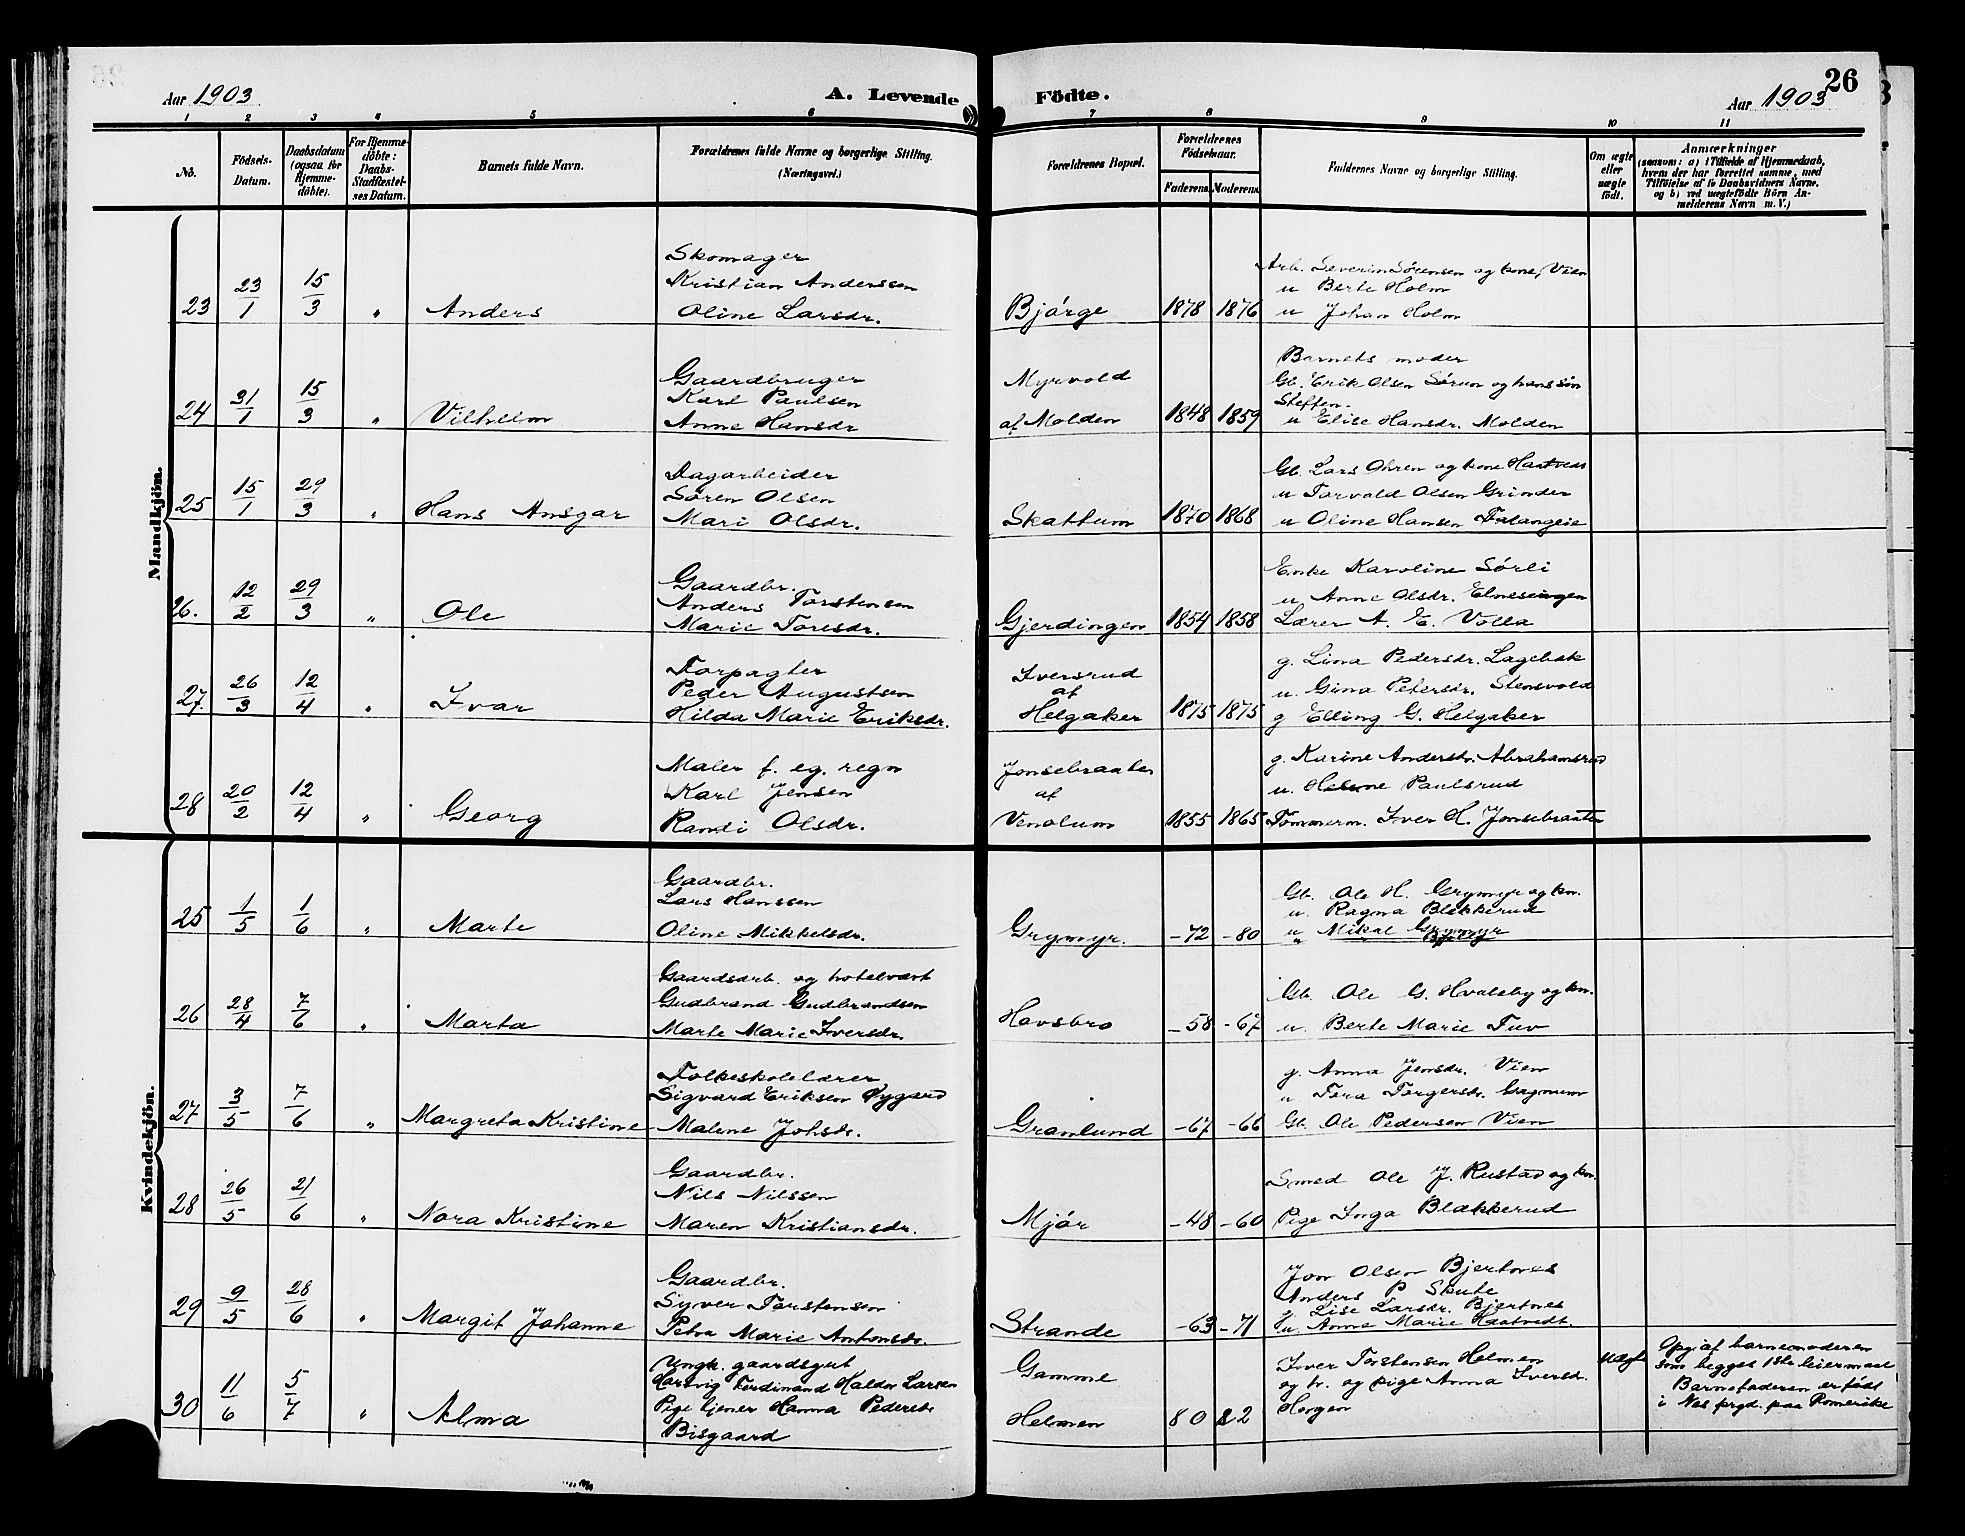 26
Aar 1903.
A. Levende
Födte.
Aar 1903
1 2 3 4 5 6 7 8 9 10 11
No.
Födsels-
Datum.
Daabsdatum
(ogsaa for
Hjemme-
döbte).
For Hjemme-
döbte:
Daabs-
Stadfæstel-
ses Datum.
Barnets fulde Navn.
Forældrenes fulde Navne og borgerlige Stilling.
(Næringsvei.)
Forældrenes Bopæl.
Forældrenes
Födselsaar.
Faderens.
Moderens.
Faddernes Navne og borgerlige Stilling.
Om ægte
eller
uægte
födt.
Anmærkninger
(saasom: a) i Tilfælde af Hjemmedaab,
hvem der har forrettet samme, med
Tilföielse af to Daabsvidners Navne.
og b) ved uægtefödte Börn An-
melderens Navn m. V.)
Mandkjön.
23 23/1 15/3 " Anders
Skomager
Kristian Anderssen
Oline Larsdr.
Bjørge 1878 1876
Arb. Severin Sørensen og kone, Vien
u Berte Holm
u Johan Holm
24 31/1 15/3 " Vilhelm
Gaardbruger
Karl Paulsen
Anne Hansdr
Myrvold
af Molden 1848 1859
Barnets moder
Gb. Erik Olsen Sørum og hans søn
Steffen.
u Elise Hansdr. Molden
25 15/1 29/3 " Hans Ansgar
Dagarbeider
Søren Olsen
Mari Olsdr.
Skattum 1870 1868
Gb. Lars Ohren og kone
u Torvald Olsen Grinder
u Oline Hansen Falangeie
26. 12/2 29/3 " Ole
Gaardbr.
Anders Torstensen
Marie Toresdr.
Gjerdingen 1854 1858
Enke Karoline Sørli
u Anne Olsdr. Elneseingen
Lærer A. E. Volla
27. 26/3 12/4 " Ivar
Forpagter
Peder Augustsen
Hilda Marie Eriksdr.
Iversrud
af
Helgaker 1875 1875
g. Lina Pedersdr. Lagebæk
u. Gina Petersdr. Stensvold
g Elling G. Helgaker
28 20/2 12/4 " Georg
Maler f. eg. regn
Karl Jensen
Randi Olsdr.
Jonsebraaten
af
Venolum 1855 1865
g. Karine Andersdr. Abrahamsrud
u. Helene Paulsrud
Tømmerm. Iver H. Jonsebraaten
Kvindekjön.
25 1/5 1/6 " Marte
Gaardbr.
Lars Hanssen
Oline Mikkelsdr.
Grymyr. -72 -80
Gb. Ole H. Grymyr og kn.
u. Ragna Blækkerud
u Mikal Grymyr
26 28/4 7/6 " Marta
Gaardsarb. og hotelvært
Gudbrand Gudbrandsen
Marte Marie Iversdr.
Havsbro -58 -67
Gb. Ole G. Hvalsby og kn.
u. Berte Marie Tuv
27 3/5 7/6 " Margreta Kristine
Folkeskolelærer
Sigvard Eriksen Nygard
Malene Johsdr.
Granlund -67 -66
g. Anna Jensdr. Vien
u Tora Torgersdr. Gagnum
Gb. Ole Pedersen Vien
28 26/5 21/6 " Nora Kristine
Gaardbr.
Nils Nilssen
Maren Kristiansdr.
Mjør -48 -60
Smed Ole J. Rustad og kn.
Pige Inga Blækkerud
29 9/5 28/6 " Margit Johanne
Gaardbr.
Syver Torstensen
Petra Marie Antonsdr.
Strande -63 -71
Jon Olsen Bjertnes
Anders P Skute
g. Lise Larsdr. Bjertnes
Pu. Anne Marie Haatvedt.
30 11/6 5/7 " Alma
Ungk. gaardsgut
Hartvig Ferdinand Haldor Larsen
Pige tjener Hanna Pedersdr
Bisgaard
Gamme
Helmen 80 82
Iver Torstensen Helmen
og h. og pige Anna Iversd.
Horgen
uægte
Opg. af barnemoderen
som begges 1ste leiermaal
Barnefaderen er født
i Nes prgd. paa Romerike